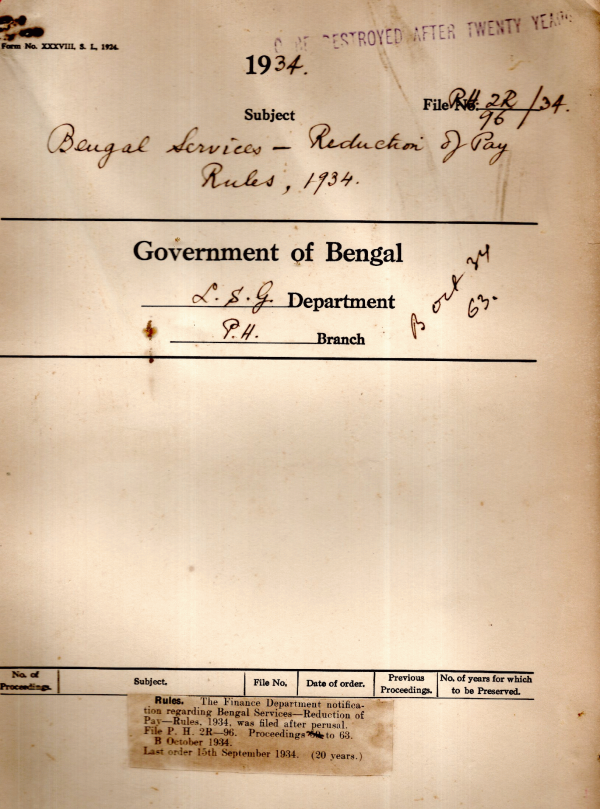 Form No. XXXVIII, S. L., 1924.
DESTROYED AFTER TWENTY YEARS
1934.
File No. P.H. 2R/96/34.
Subject
Bengal Services — Reduction of Pay
Rules, 1934.
Government of Bengal
L. S. G. Department
P.H. Branch
B Oct 34
63.
No. of Proceedings. Subject. File No. Date of order. Previous Proceedings. No. of years for which to be Preserved.
Rules. The Finance Department notifica-
tion regarding Bengal Services—Reduction of
Pay—Rules, 1934, was filed after perusal.
File P. H. 2R—96. Proceedings to 63.
B October 1934.
Last order 15th September 1934. (20 years.)